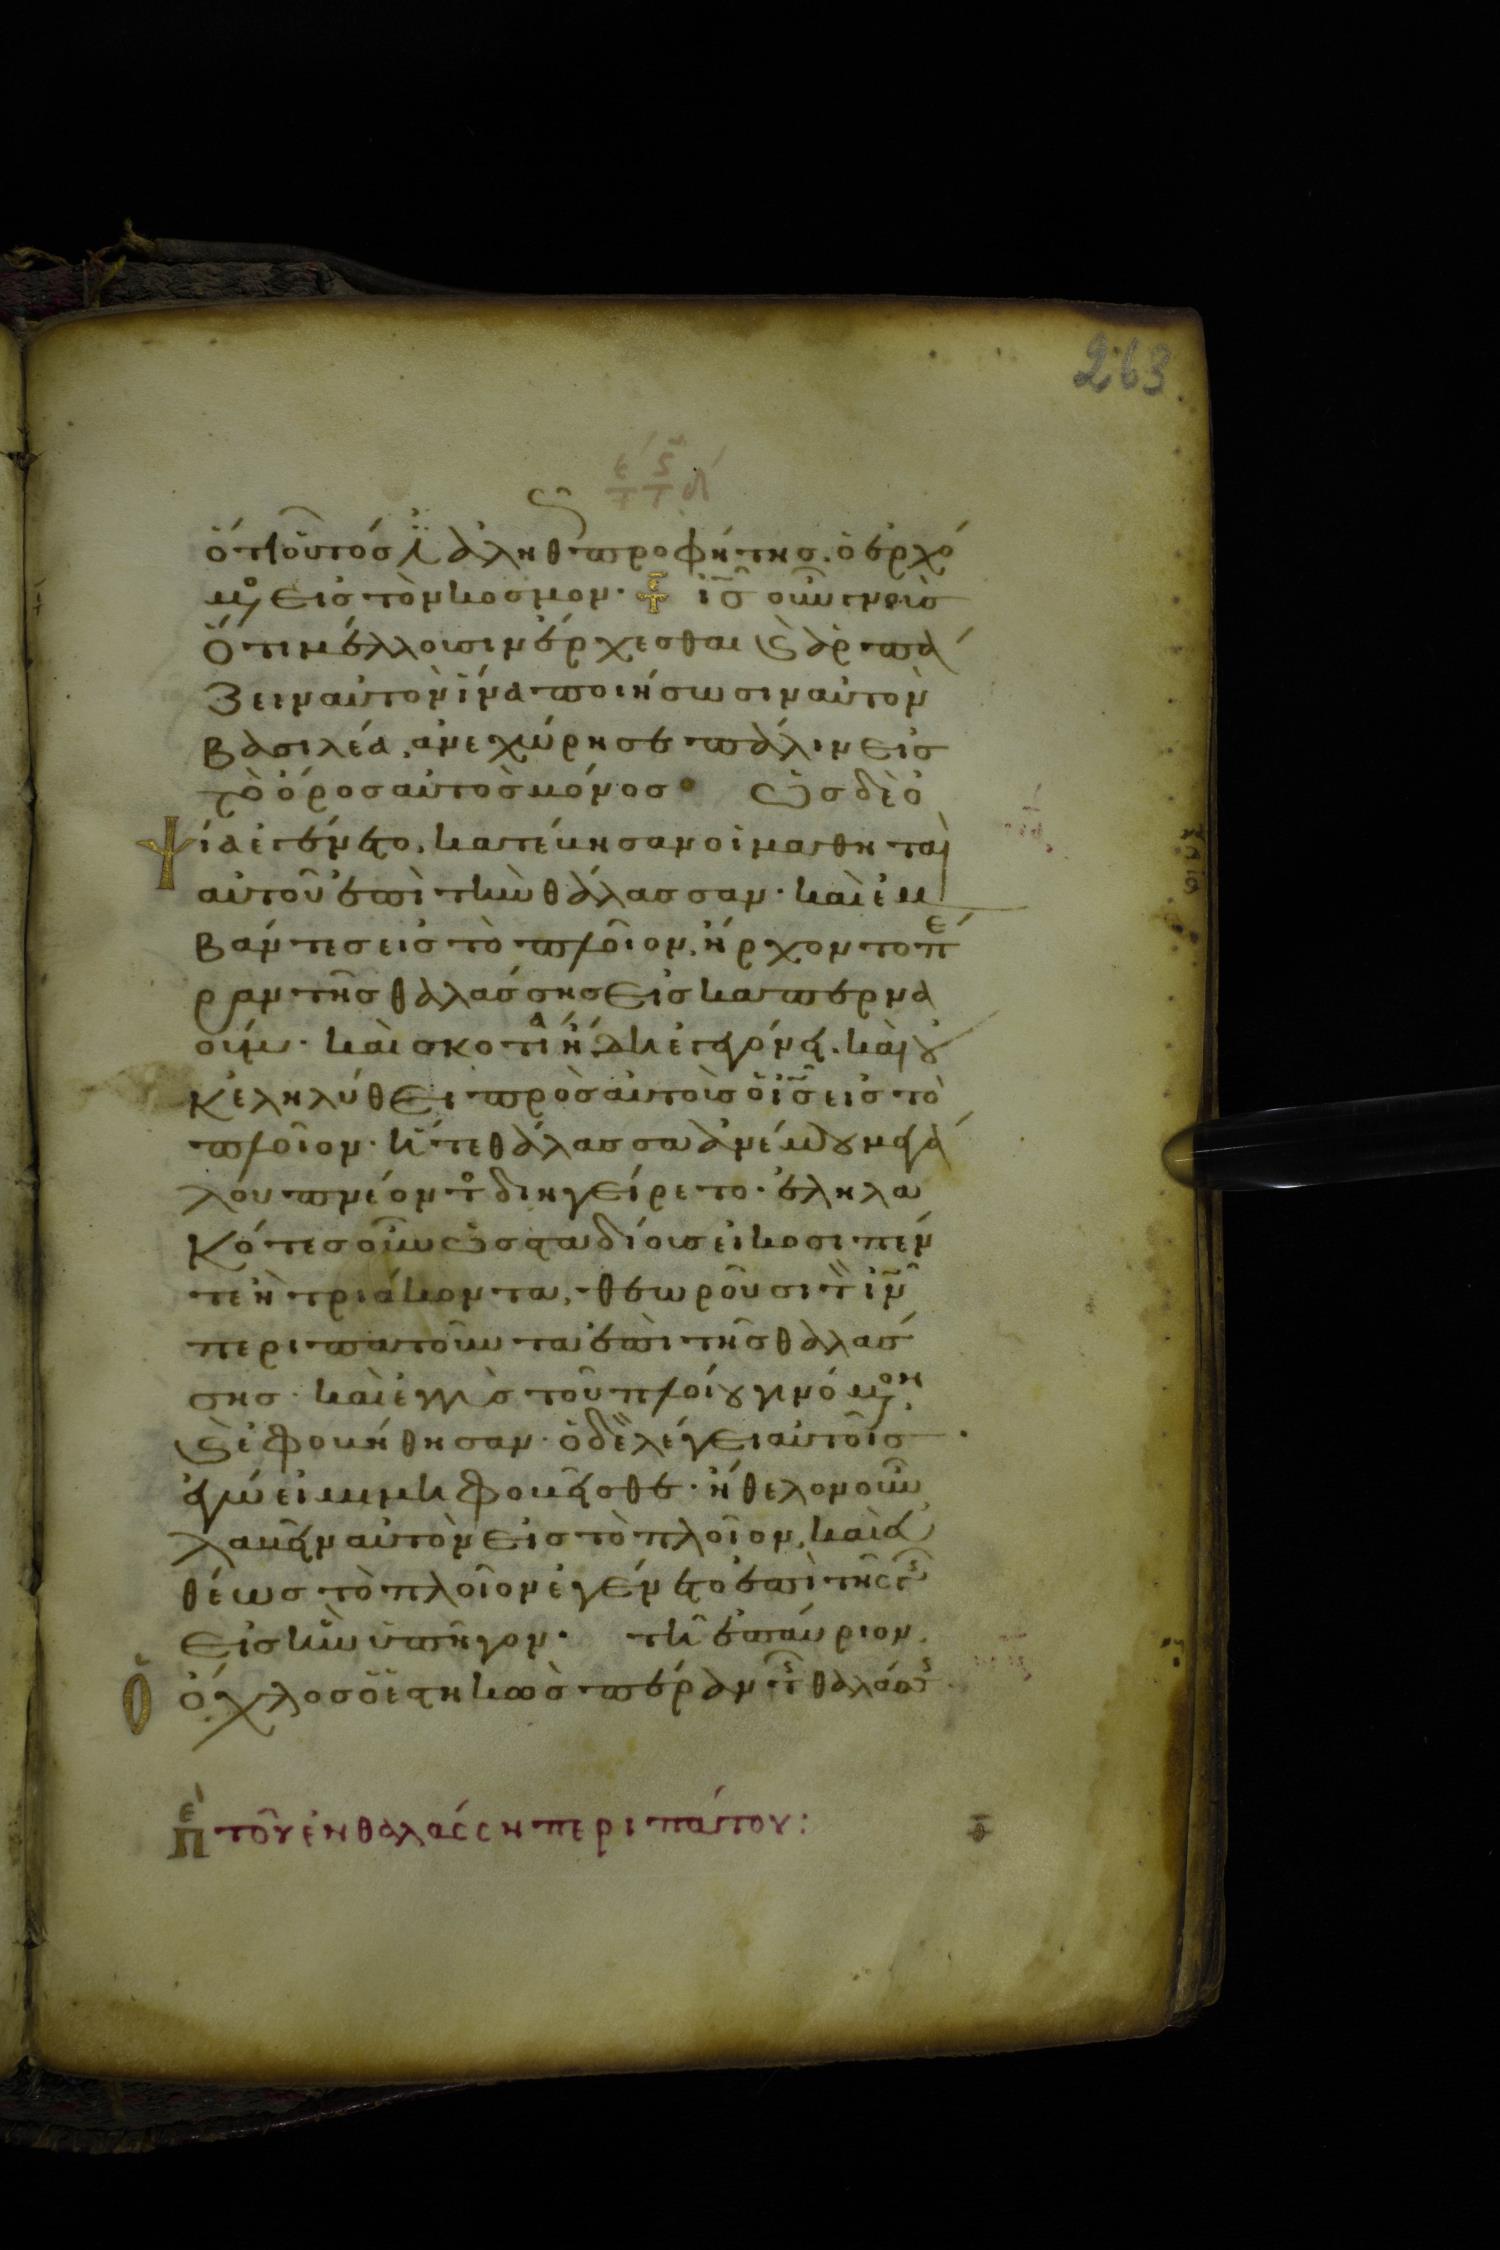 263
ὅτι οὗτός ἐ ἀληθῶς προφήτης. ὁ ἐρχό
μ̅ο εἰς τὸν κόσμον· ι̅ς̅ οὖν γνοὺς
ὅτι μέλλουσιν ἔρχεσθαι καὶ ἁρπά
ζειν αὐτὸν ἵνα ποιήσωσιν αὐτὸν
βασιλέα, ἀνεχώρησε πάλιν εἰς
τὸ ὄρος αὐτὸς μόνος· Ὡς δὲ ὀ
ψία ἐγένετο, κατέβησαν οἱ μαθηταὶ
αὐτοῦ ἐπὶ τὴν θάλασσαν· καὶ ἐμ
βάντες εἰς τὸ πλοῖον, ἤρχοντο πέ
ραν τῆς θαλάσσης εἰς καπερνα
ούμ· καὶ σκοτία ἤδη ἐγεγόνει. καὶ οὐ
κ ἐληλύθει πρὸς αὐτοὺς ὁ ι̅ς̅ εἰς τὸ
πλοῖον· ἥ τε θάλασσα ἀνέμου μεγά
λου πνέοντο διηγείρετο· ἐληλα
κότες οὖν ὡς σταδίους εἴκοσι πέν
τε ἢ τριάκοντα, θεωροῦσι τὸν ι̅ν̅
περιπατοῦντα ἐπὶ τῆς θαλάσ
σης· καὶ ἐγγὺς τοῦ πλοίου γινόμ̅ον
καὶ ἐφοβήθησαν· ὁ δὲ λέγει αὐτοῖς·
ἐγώ εἰμι μὴ φοβεῖσθε· ἤθελον οὖν
λαβεῖν αὐτὸν εἰς τὸ πλοῖον, καὶ εὐ
θέως τὸ πλοῖον ἐγένετο ἐπὶ τῆς γῆς
εἰς ἣν ὑπῆγον· τῇ ἐπαύριον
ὁ ὄχλος ὁ ἑστηκὼς πέραν τῆς θαλάσς
πε τοῦ ἐν θαλάσσῃ περιπάτου: